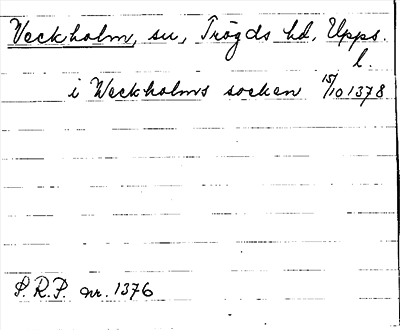 Veckholm, sn, Trögds hd, Upps.
l.
i Weckholms socken 15/10 1378
S.R.P. nr. 1376